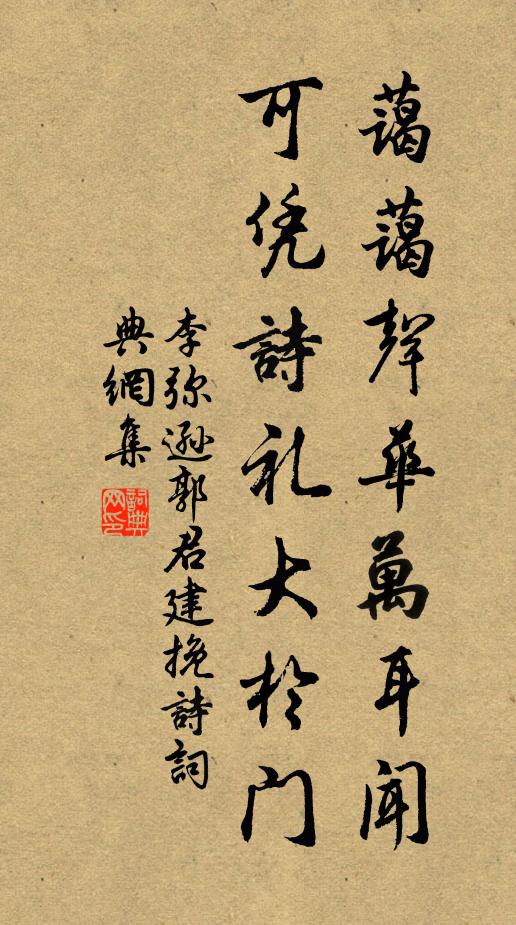 藹藹聲華萬耳聞
可凭詩礼大於门
李弥遜郭君建挽詩詞
典網集
詞典网印